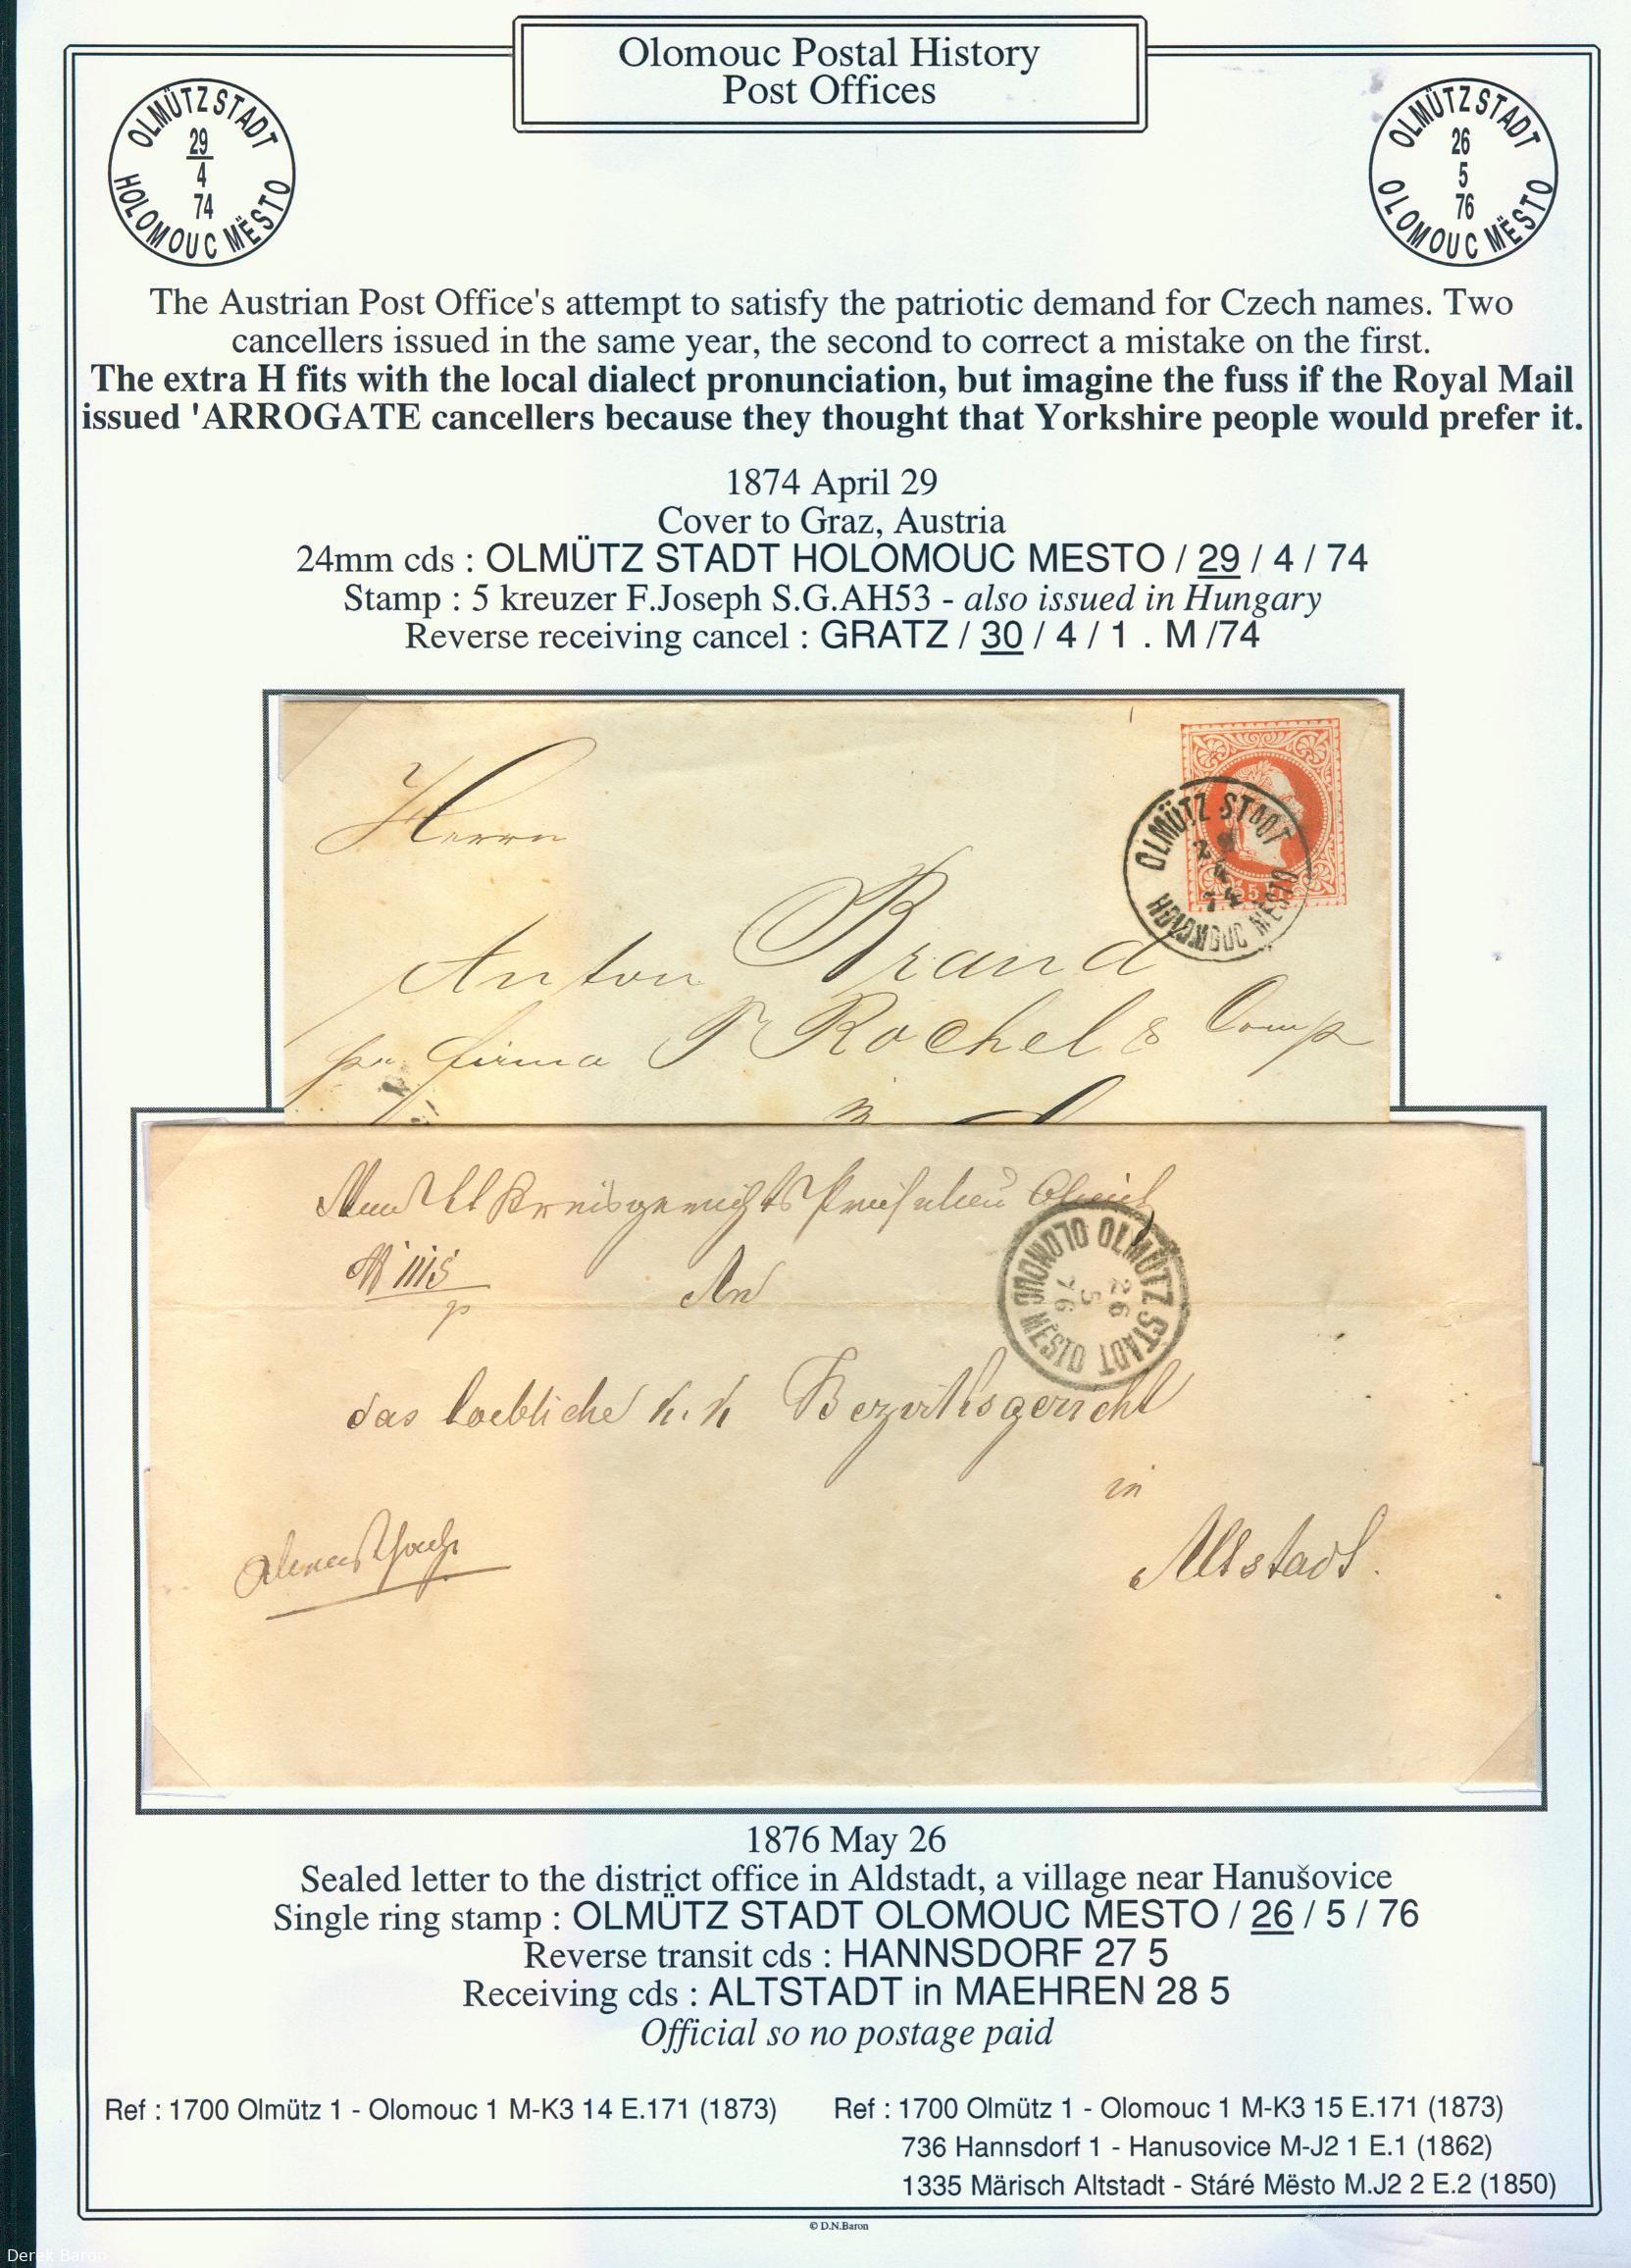 Olomouc Postal History
Post Offices
OLMÜTZ STADT
29
4
74
HOLOMOUC MËSTO
OLMÜTZ STADT
26
5
76
OLOMOUC MËSTO
The Austrian Post Office's attempt to satisfy the patriotic demand for Czech names. Two
cancellers issued in the same year, the second to correct a mistake on the first.
The extra H fits with the local dialect pronunciation, but imagine the fuss if the Royal Mail
issued 'ARROGATE cancellers because they thought that Yorkshire people would prefer it.
1874 April 29
Cover to Graz, Austria
24mm cds : OLMÜTZ STADT HOLOMOUC MESTO / 29 / 4 / 74
Stamp : 5 kreuzer F.Joseph S.G.AH53 - also issued in Hungary
Reverse receiving cancel : GRATZ / 30 / 4 / 1 . M /74
Herrn
OLMÜTZ STADT
4
74
HOLOMOUC MESTO
Anton Brand
pr Firma Rochel & Comp
An
OLMÜTZ STADT
26
5
76
OLOMOUC MĚSTO
das loebliche k. k Bezirksgericht
in
Altstadt.
1876 May 26
Sealed letter to the district office in Aldstadt, a village near Hanušovice
Single ring stamp : OLMÜTZ STADT OLOMOUC MESTO / 26 / 5 / 76
Reverse transit cds : HANNSDORF 27 5
Receiving cds : ALTSTADT in MAEHREN 28 5
Official so no postage paid
Ref : 1700 Olmütz 1 - Olomouc 1 M-K3 14 E.171 (1873)
Ref : 1700 Olmütz 1 - Olomouc 1 M-K3 15 E.171 (1873)
736 Hannsdorf 1 - Hanusovice M-J2 1 E.1 (1862)
1335 Märisch Altstadt - Stáré Mësto M.J2 2 E.2 (1850)
© D.N.Baron
Derek Baron